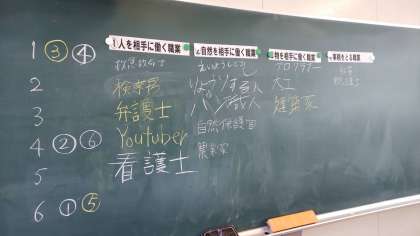 1 ③ ④
2
3
4 ② ⑥
5
6 ① ⑤
①人を相手に働く職業
救急救命士
検察官
弁護士
Youtuber
看護士
自然を相手に働く職業
りょうりする人
パン職人
自然保護官
農家
物を相手に働く職業
プロゲーマー
大工
建築家
事務をとる職業